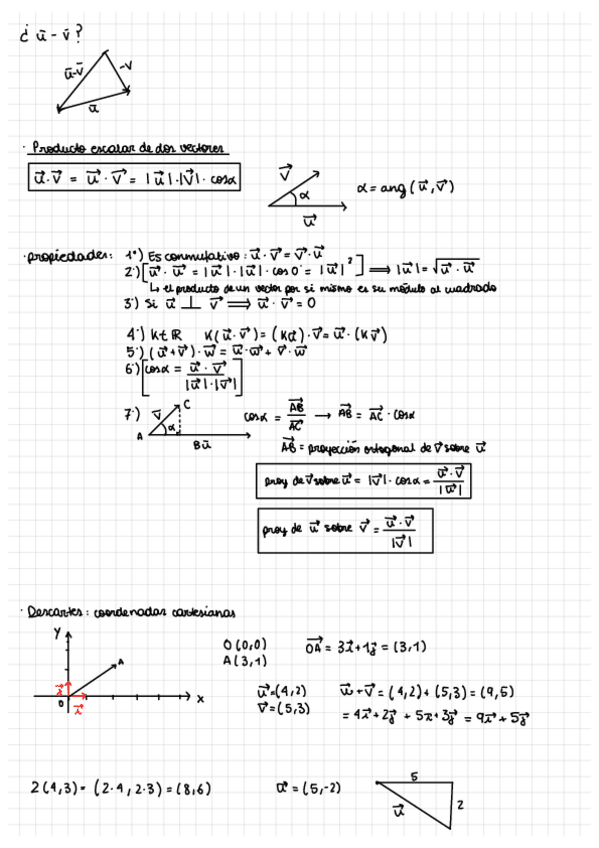 ¿ u⃗ - v⃗ ?
u⃗-v⃗
-v
u⃗
· Producto escalar de dos vectores
u⃗·v⃗ = u⃗ · v⃗ = |u⃗|·|v⃗|· cosα
v⃗
α
u⃗
α = ang (u⃗,v⃗)
· propiedades: 1º) Es conmutativo: u⃗ · v⃗ = v⃗ · u⃗
2º) [u⃗ · u⃗ = |u⃗|·|u⃗|· cos 0º = |u⃗|²] ⟹ |u⃗| = √u⃗ · u⃗
↳ el producto de un vector por si mismo es su módulo al cuadrado
3º) Si u⃗ ⊥ v⃗ ⟹ u⃗ · v⃗ = 0
4º) K∈ℝ K(u⃗ · v⃗) = (Ku⃗)·v⃗ = u⃗·(Kv⃗)
5º) (u⃗+v⃗)·w⃗ = u⃗·w⃗ + v⃗·w⃗
6º) [cosα = u⃗ · v⃗ / |u⃗|·|v⃗|]
7º)
v⃗
C
α
A
B u⃗
cosα = AB / AC → AB = AC · cosα
AB = proyección ortogonal de v⃗ sobre u⃗
proy de v⃗ sobre u⃗ = |v⃗| · cosα = u⃗·v⃗ / |u⃗|
proy de u⃗ sobre v⃗ = u⃗·v⃗ / |v⃗|
· Descartes: coordenadas cartesianas
Y
A
j⃗
0
i⃗
X
O (0,0)
A (3,1)
OA = 3i⃗+1j⃗ = (3,1)
u⃗=(4,2)
v⃗=(5,3)
u⃗+v⃗ = (4,2)+(5,3) = (9,5)
= 4i⃗+2j⃗ + 5i⃗+3j⃗ = 9i⃗+5j⃗
2(4,3) = (2·4, 2·3) = (8,6)
u⃗ = (5,-2)
5
2
u⃗